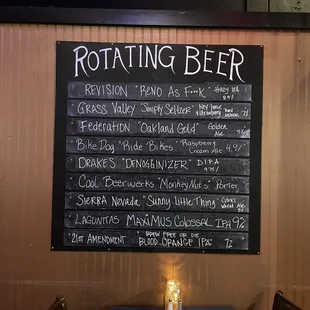 ROTATING BEER
REVISION "RENO AS F**K" HAZY IPA
GRASS VALLEY SIMPLY SELTZER KEY LIME & STRAWBERRY
FEDERATION "OAKLAND GOLD" GOLDEN ALE 5%
BIKE DOG "RIDE BIKES" RASPBERRY CREAM ALE 4.9%
DRAKE'S "DENOGGINIZER" D.I.P.A 9.75%
COOL BEERWERKS "MONKEY NUTS" PORTER
SIERRA NEVADA "SUNNY LITTLE THING" CITRUS WHEAT ALE 5%
LAGUNITAS MAXIMUS COLOSSAL IPA 9%
21ST AMENDMENT "BREW FREE OR DIE BLOOD ORANGE IPA" 7%